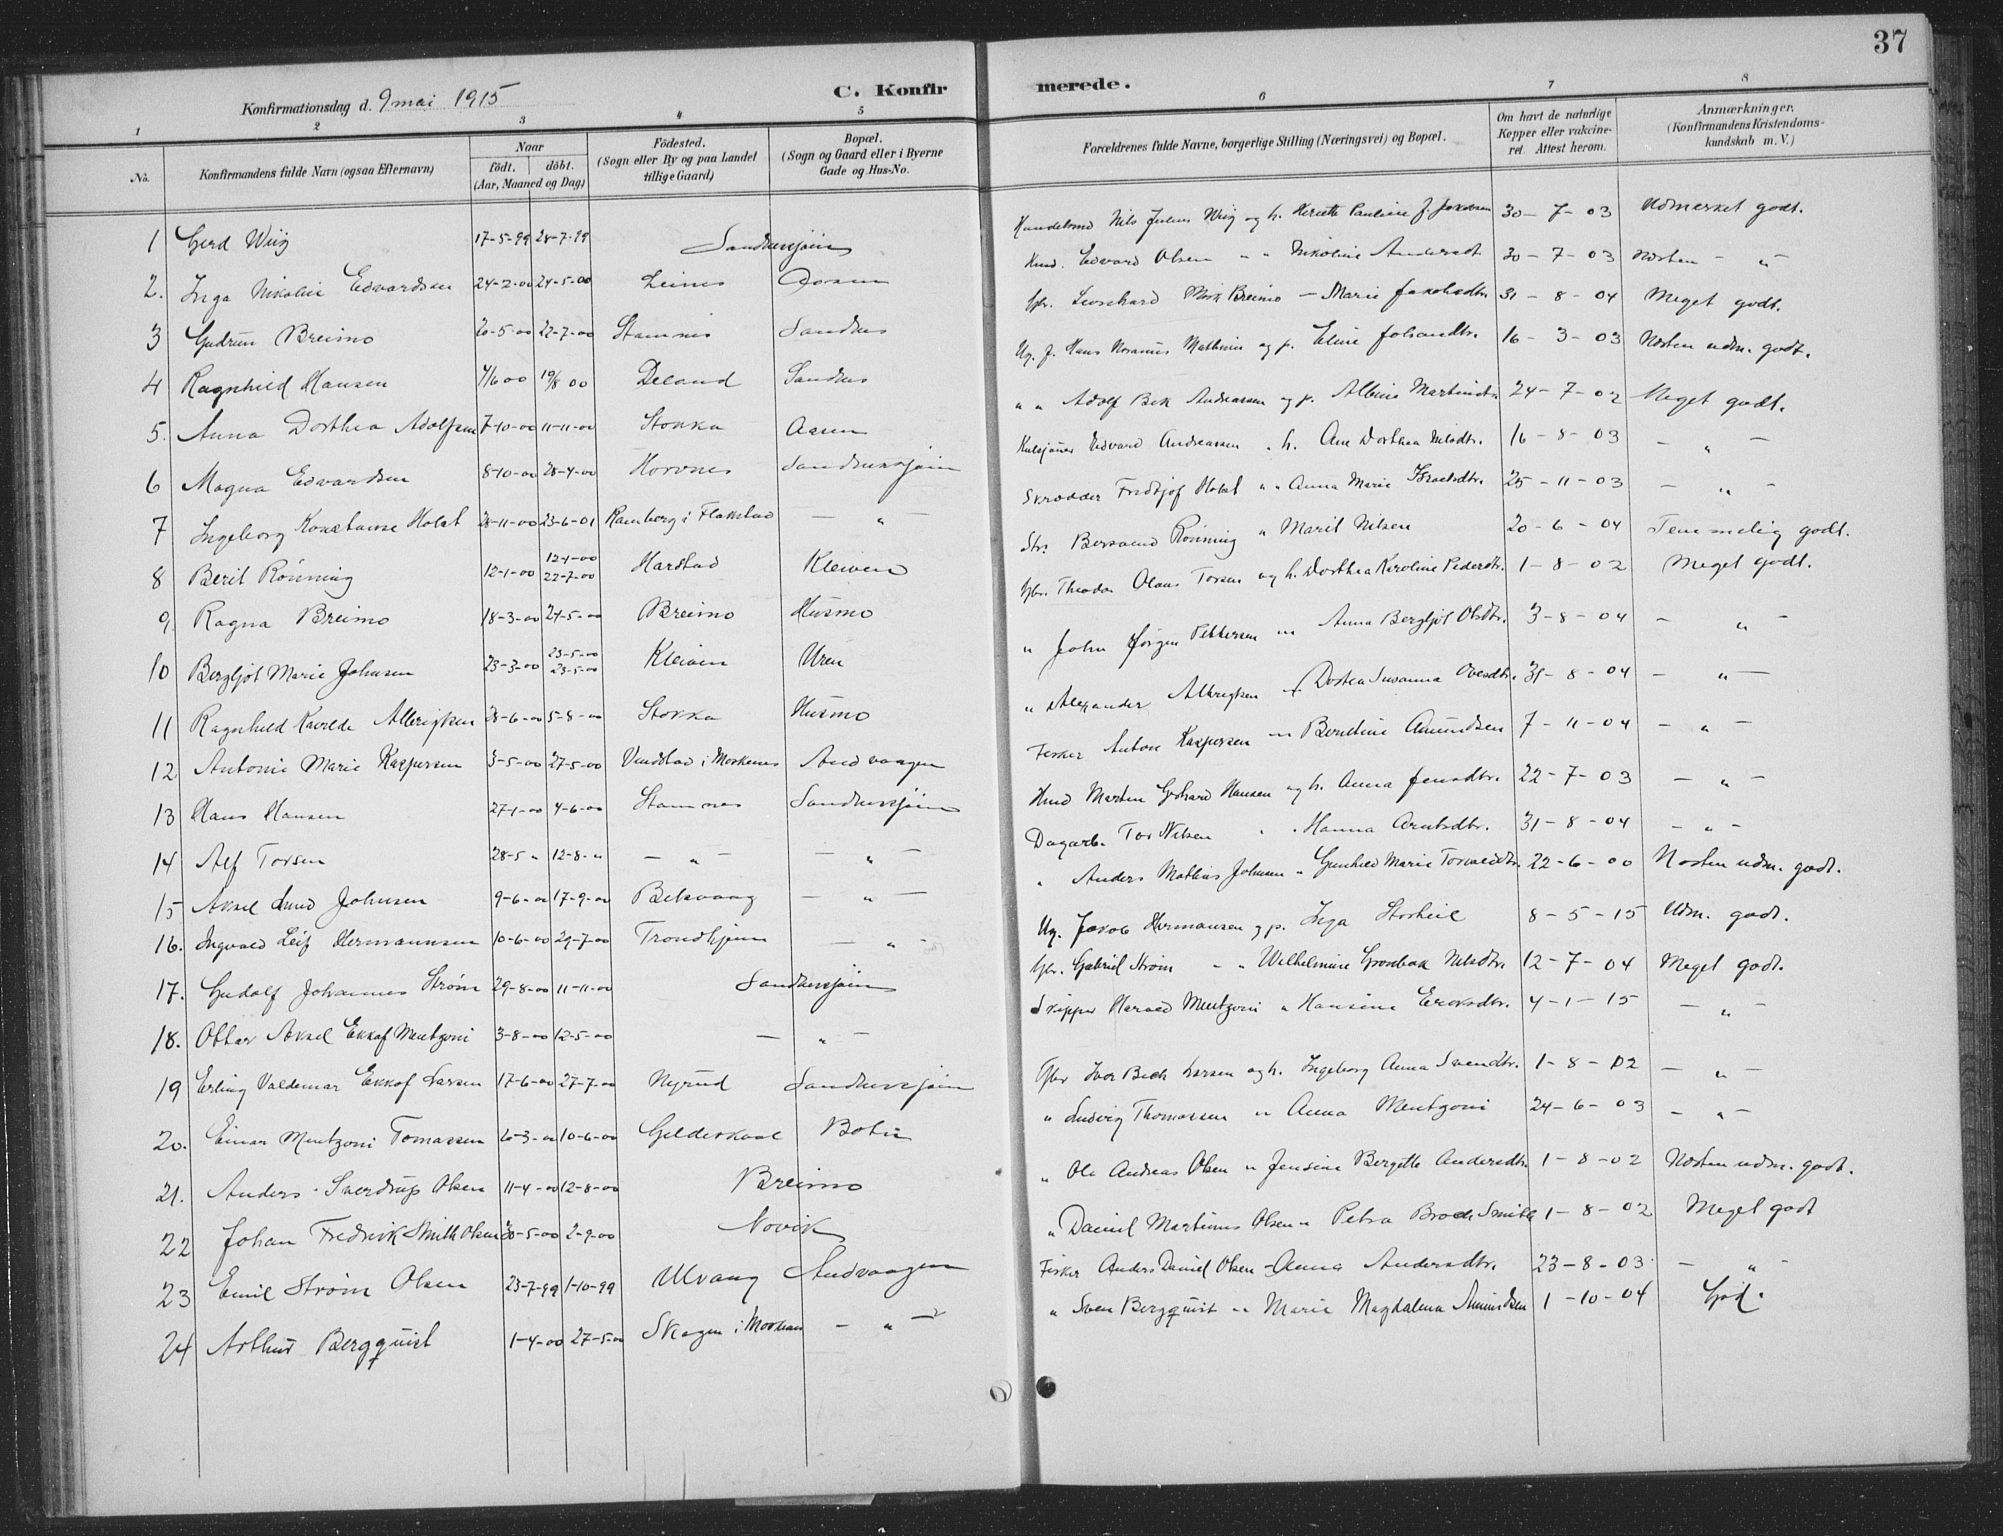 37
Konfirmationsdag d. 9 mai 1915
C. Konfirmerede.
1 2 3 4 5 6 7 8
No. Konfirmandens fulde Navn (ogsaa Efternavn) Naar födt. döbt. (Aar, Maaned og Dag) Födested. (Sogn eller By og paa Landet tillige Gaard) Bopæl. (Sogn og Gaard eller i Byerne Gade og Hus-No. Forældrenes fulde Navne, borgerlige Stilling (Næringsvei) og Bopæl. Om havt de naturlige Kopper eller vakcineret. Attest herom. Anmærkninger. (Konfirmandens Kristendomskundskab m. V.)
1 Gerd Wiig 17-5-99 28-7-99 Sandnessjøen Nils Julius Wiig og h. Pauline J. 30-7-03 Udmerket godt.
2. Inga Nikoline Edvardsen 24-2-00 24-5-00 Leines Edvard Olsen " " Nikoline Andersdt. 30-7-03 Næsten - " -
3 Gudrun Breimo 20-5-00 22-7-00 Stamnes Sandnes Gbr. Leonhard Breimo - Marie Jakobsdtr. 31-8-04 Meget godt.
4 Ragnhild Hansen 4/6 00 19/8 00 Deland Sandnes Ug. f. Hans Mathias og p. Eline Johansdtr. 16-3-03 Næsten udm. godt.
5. Anna Dorthea Adolfsen 7-10-00 11-11-00 Stokka Aasen " " Adolf Bek Andreassen og p. Albine Martinsdtr. 24-7-02 Meget godt.
6 Magna Edvardsen 8-10-00 28-4-00 Horvnes Sandnessjøen Edvard Andreassen " h. Ane Dorthea Nilsdtr. 16-8-03 - " -
7 Ingeborg Konstanse Holst 28-11-00 23-6-01 Ramberg i Flakstad - " - Skrædder Fredtjof Holst " " Anna Marie Israelsdtr. 25-11-03 - " -
8 Berit Rönning 12-1-00 12-1-00 22-7-00 Harstad Kleiven Rönning " Marit Nilsen 20-6-04 Temmelig godt.
9 Ragna Breimo 18-3-00 24-5-00 Breimo Husmo Gbr. Theodor Olaus Torsen og h. Dorthea Karoline Pedersdtr. 1-8-02 Meget godt.
10 Bergljot Marie Johnsen 23-3-00 23-5-00 23-5-00 Kleiven Uren " John Jörgen Pettersen " " Anna Bergljot Olsdtr. 3-8-04 - " -
11 Ragnhild Albrigtsen 28-6-00 5-8-00 Stokka Husmo " Alexander Albrigtsen Dortea Susanna Ovesdtr. 31-8-04 - " -
12 Antonie Marie Kaspersen 3-5-00 27-5-00 Vindstad i Moskenes Andvaagen Fisker Anton Kaspersen " " Berntine Amundsen 7-11-04 - " -
13 Hans Hansen 27-1-00 4-6-00 Stamnes Sandnessjøen Hmd Morten Gerhard Hansen og h. Anna Jensdtr. 22-7-03 - " -
14 Alf Torsen 28-5 " 12-8-" - " - - " - Dagarb. Tor Nilsen " " Hanna Arntsdtr. 31-8-04 - " -
15 Aksel Lund Johnsen 9-6-00 17-9-00 Belsvaag - " - " Anders Mathias Johnsen " Gunhild Marie Torvaldsdtr. 22-6-00 Næsten udm. godt.
16. Ingvald Leif Hermannsen 10-6-00 29-7-00 Trondhjem - " - Ug. Jakob Hermansen og p. Inga Storheil 8-5-15 Udm. godt.
17. Gudolf Johannes Strøm 29-8-00 11-11-00 Sandnessjøen Gbr. Gabriel Strøm - " Wilhelmine Grønbæk Nilsdtr. 12-7-04 Meget godt.
18. Ottar Aksel Ekkof Mentzoni 3-8-00 12-5-00 - " - Skipper Harald Mentzoni " Hansine Eriksdtr. 4-1-15 - " -
19 Erling Valdemar Ekkof Larsen 17-6-00 27-7-00 Nyrud Sandnessjøen Gbr Ivar Bech Larsen og h. Ingeborg Anna Svendtr. 1-8-02 - " -
20. Einar Mentzoni Tomassen 6-3-00 10-6-00 Gildeskaal Botn " Ludvig Thomassen " " Anna Mentzoni 24-6-03 - " -
21. Anders Sverdrup Olsen 11-4-00 12-8-00 Breimo " Ole Andreas Olsen " Jensine Bergitte Andersdtr. 1-8-02 Næsten udm. godt.
22 Johan Fredrik Smith Olsen 30-5-00 2-9-00 Novik " Daniel Martinus Olsen " Petra Broch Smith 1-8-02 Meget godt
23 Emil Strøm Olsen 23-7-99 1-10-99 Ulvang Andvaagen Fisker Anders Daniel Olsen - Anna Andersdtr. 23-8-03 - " -
24 Arthur Bergquist 1-4-00 27-5-00 Skagen i Mosken - " - " Sven Bergquist " " Marie Magdalena Amundsen 1-10-04 God.